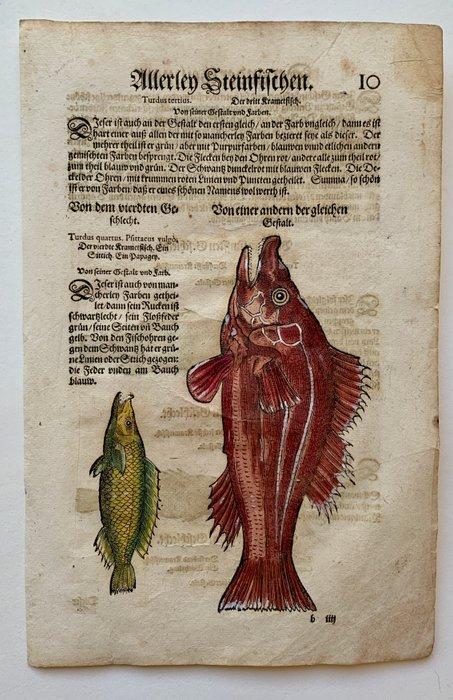 Allerley Steinfischen. 10
Turdus tertius. Der dritt Krametfisch.
Von seiner Gestalt vnd Farben.
Dieser ist auch an der Gestalt den ersten gleich / an der Farb vngleich / dann es ist
hart einer auß allen der mit so mancherley Farben bezieret seye als dieser. Der
mehrer theil ist er grün / aber mit Purpurfarben / blauwen vnnd etlichen andern
gemischten Farben besprengt. Die Flecken bey den Ohren rot / ander alle zum theil rot /
zum theil blauw vnd grün. Der Schwantz dunckelrot mit blauwen Flecken. Die De-
ckel der Ohren / mit krummen roten Linien vnd Puncten getheilet. Summa / so schön
ist er von Farben / daß er eines schönen Namens wol werth ist.
Von dem vierdten Ge-
schlecht.
Turdus quartus. Psittacus vulgò.
Der vierdte Krametfisch. Ein
Sittich. Ein Papagey.
Von seiner Gestalt vnd Farb.
Dieser ist auch von man-
cherley Farben gethei-
let / dann sein Rucken ist
schwartzlecht / sein Floßfeder
grün / seine Seiten vñ Bauch
gelb. Von den Fischohren ge-
gen dem Schwantz hat er grü-
ne Linien oder Strich gezogen:
die Feder vnden am Bauch
blauw.
Von einer andern der gleichen
Gestalt.
b iiij